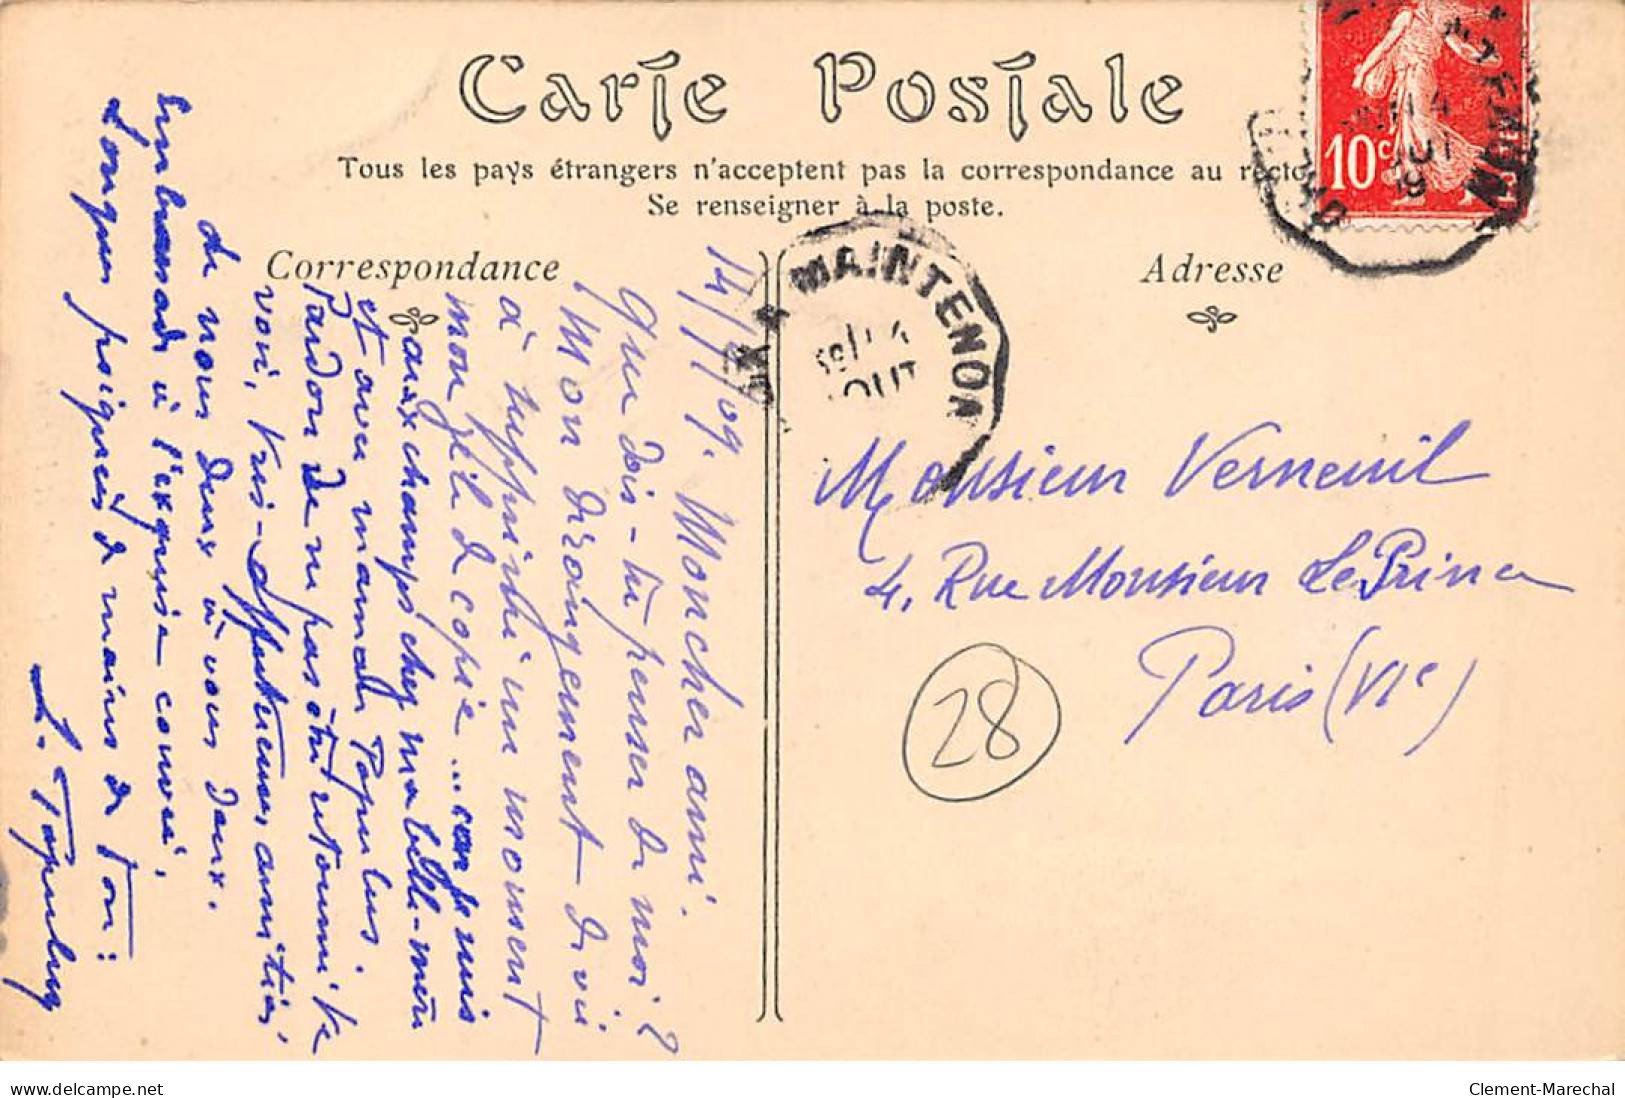 Carte Postale
Tous les pays étrangers n'acceptent pas la correspondance au recto
Se renseigner à la poste.
Correspondance
Adresse
10c
MAINTENON
14
AOUT
14/8/09. Mon cher ami.
Que dois-tu penser de moi?
Mon dérangement de vie
à suppr un moment
mon zèle de copie ... car je suis
aux champs chez ma belle-mère
et avec madame Papulus.
Pardon de ne pas être retourné te
voir, très affectueuses amitiés
de nous deux à vous deux.
Embrassade à l'exquise
Longues poignées de mains de ton:
Monsieur Verneuil
4, Rue Monsieur Le Prince
Paris (VIe)
28
delcampe.net
Clement-Marechal